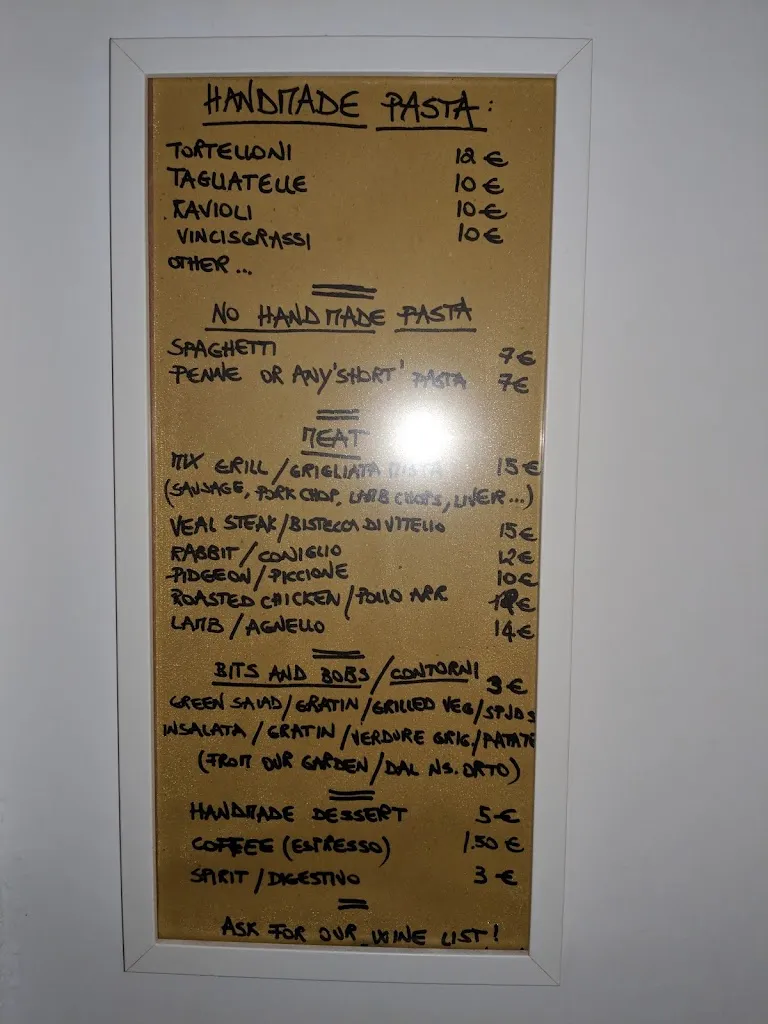 HANDMADE PASTA:
TORTELLONI 12 €
TAGLIATELLE 10 €
RAVIOLI 10 €
VINCISGRASSI 10 €
OTHER ...
NO HANDMADE PASTA
SPAGHETTI 7 €
PENNE OR ANY 'SHORT' PASTA 7 €
MEAT
MIX GRILL / GRIGLIATA MISTA 15 €
(SAUSAGE, PORK CHOP, LAMB CHOPS, LIVER ...)
VEAL STEAK / BISTECCA DI VITELLO 15 €
RABBIT / CONIGLIO 12 €
PIDGEON / PICCIONE 10 €
ROASTED CHICKEN / POLLO ARR €
LAMB / AGNELLO 14 €
BITS AND BOBS / CONTORNI 3 €
GREEN SALAD / GRATIN / GRILLED VEG / SPUDS
INSALATA / GRATIN / VERDURE GRIG / PATATE
(FROM OUR GARDEN / DAL NS. ORTO)
HANDMADE DESSERT 5 €
COFFEE (ESPRESSO) 1.50 €
SPIRIT / DIGESTIVO 3 €
ASK FOR OUR WINE LIST!